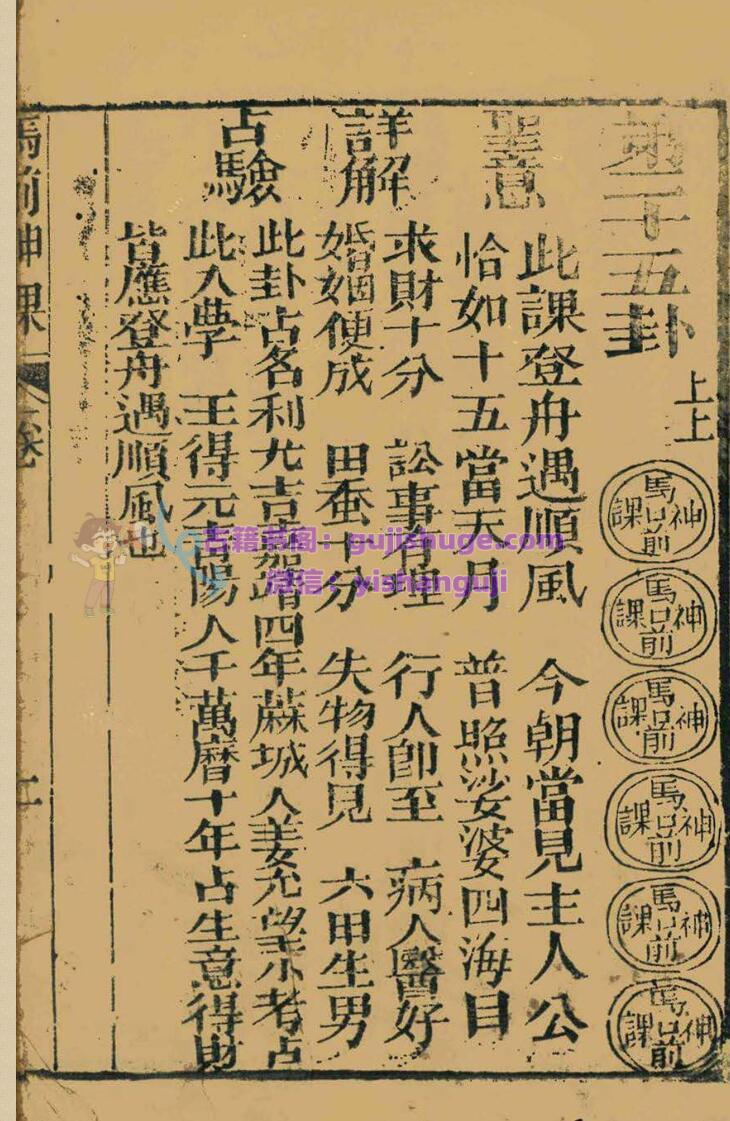 第二十五卦 上上
馬口前神課
馬口前神課
馬口前神課
馬口前神課
馬口前神課
馬口前神課
聖意 此課登舟遇順風 今朝當見主人公
恰如十五當天月 普照娑婆四海目
詳解 求財十分 訟事有理 行人即至 病人醫好
婚姻便成 田蚕十分 失物得見 六甲生男
占驗 此卦占名利尤吉嘉靖四年蔴城人姜允望小考占
此入學 王得元 陽人 萬曆十年占生意得財
皆應登舟遇順風也
馬前神課 卷
古籍书阁：gujishuge.com
微信：yishanguji